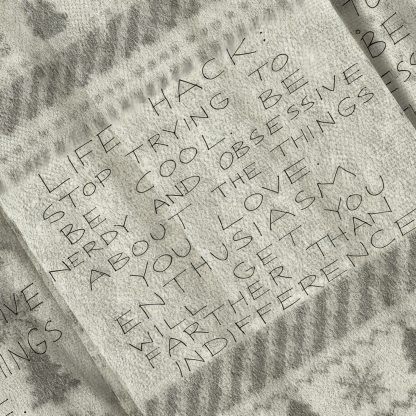 LIFE HACK:
STOP TRYING TO
BE COOL. BE
NERDY AND OBSESSIVE
ABOUT THE THINGS
YOU LOVE.
ENTHUSIASM
WILL GET YOU
FARTHER THAN
INDIFFERENCE
TO
BE
ESS
IVE
INGS